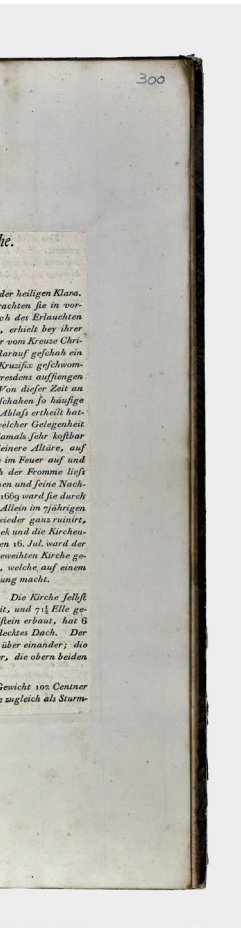 300
he.
der heiligen Klara.
rachten ſie in vor-
ch des Erlauchten
, erhielt bey ihrer
r vom Kreuze Chri-
darauf geſchah ein
Kruzifix geſchwom-
resdens auffiengen
Von dieſer Zeit an
ſchahen ſo häufige
Ablaſs ertheilt hat-
welcher Gelegenheit
damals ſehr koſtbar
leinere Altäre, auf
im Feuer auf und
h der Fromme lieſs
nen und ſeine Nach-
1669 ward ſie durch
Allein im 7jährigen
wieder ganz ruinirt,
ek und die Kirchen-
en 16. Jul. ward der
geweihten Kirche ge-
, welche auf einem
ung macht.
Die Kirche ſelbſt
it, und 71½ Elle ge-
ſtein erbaut, hat 6
decktes Dach. Der
über einander; die
r, die obern beiden
Gewicht 102 Centner
zugleich als Sturm-